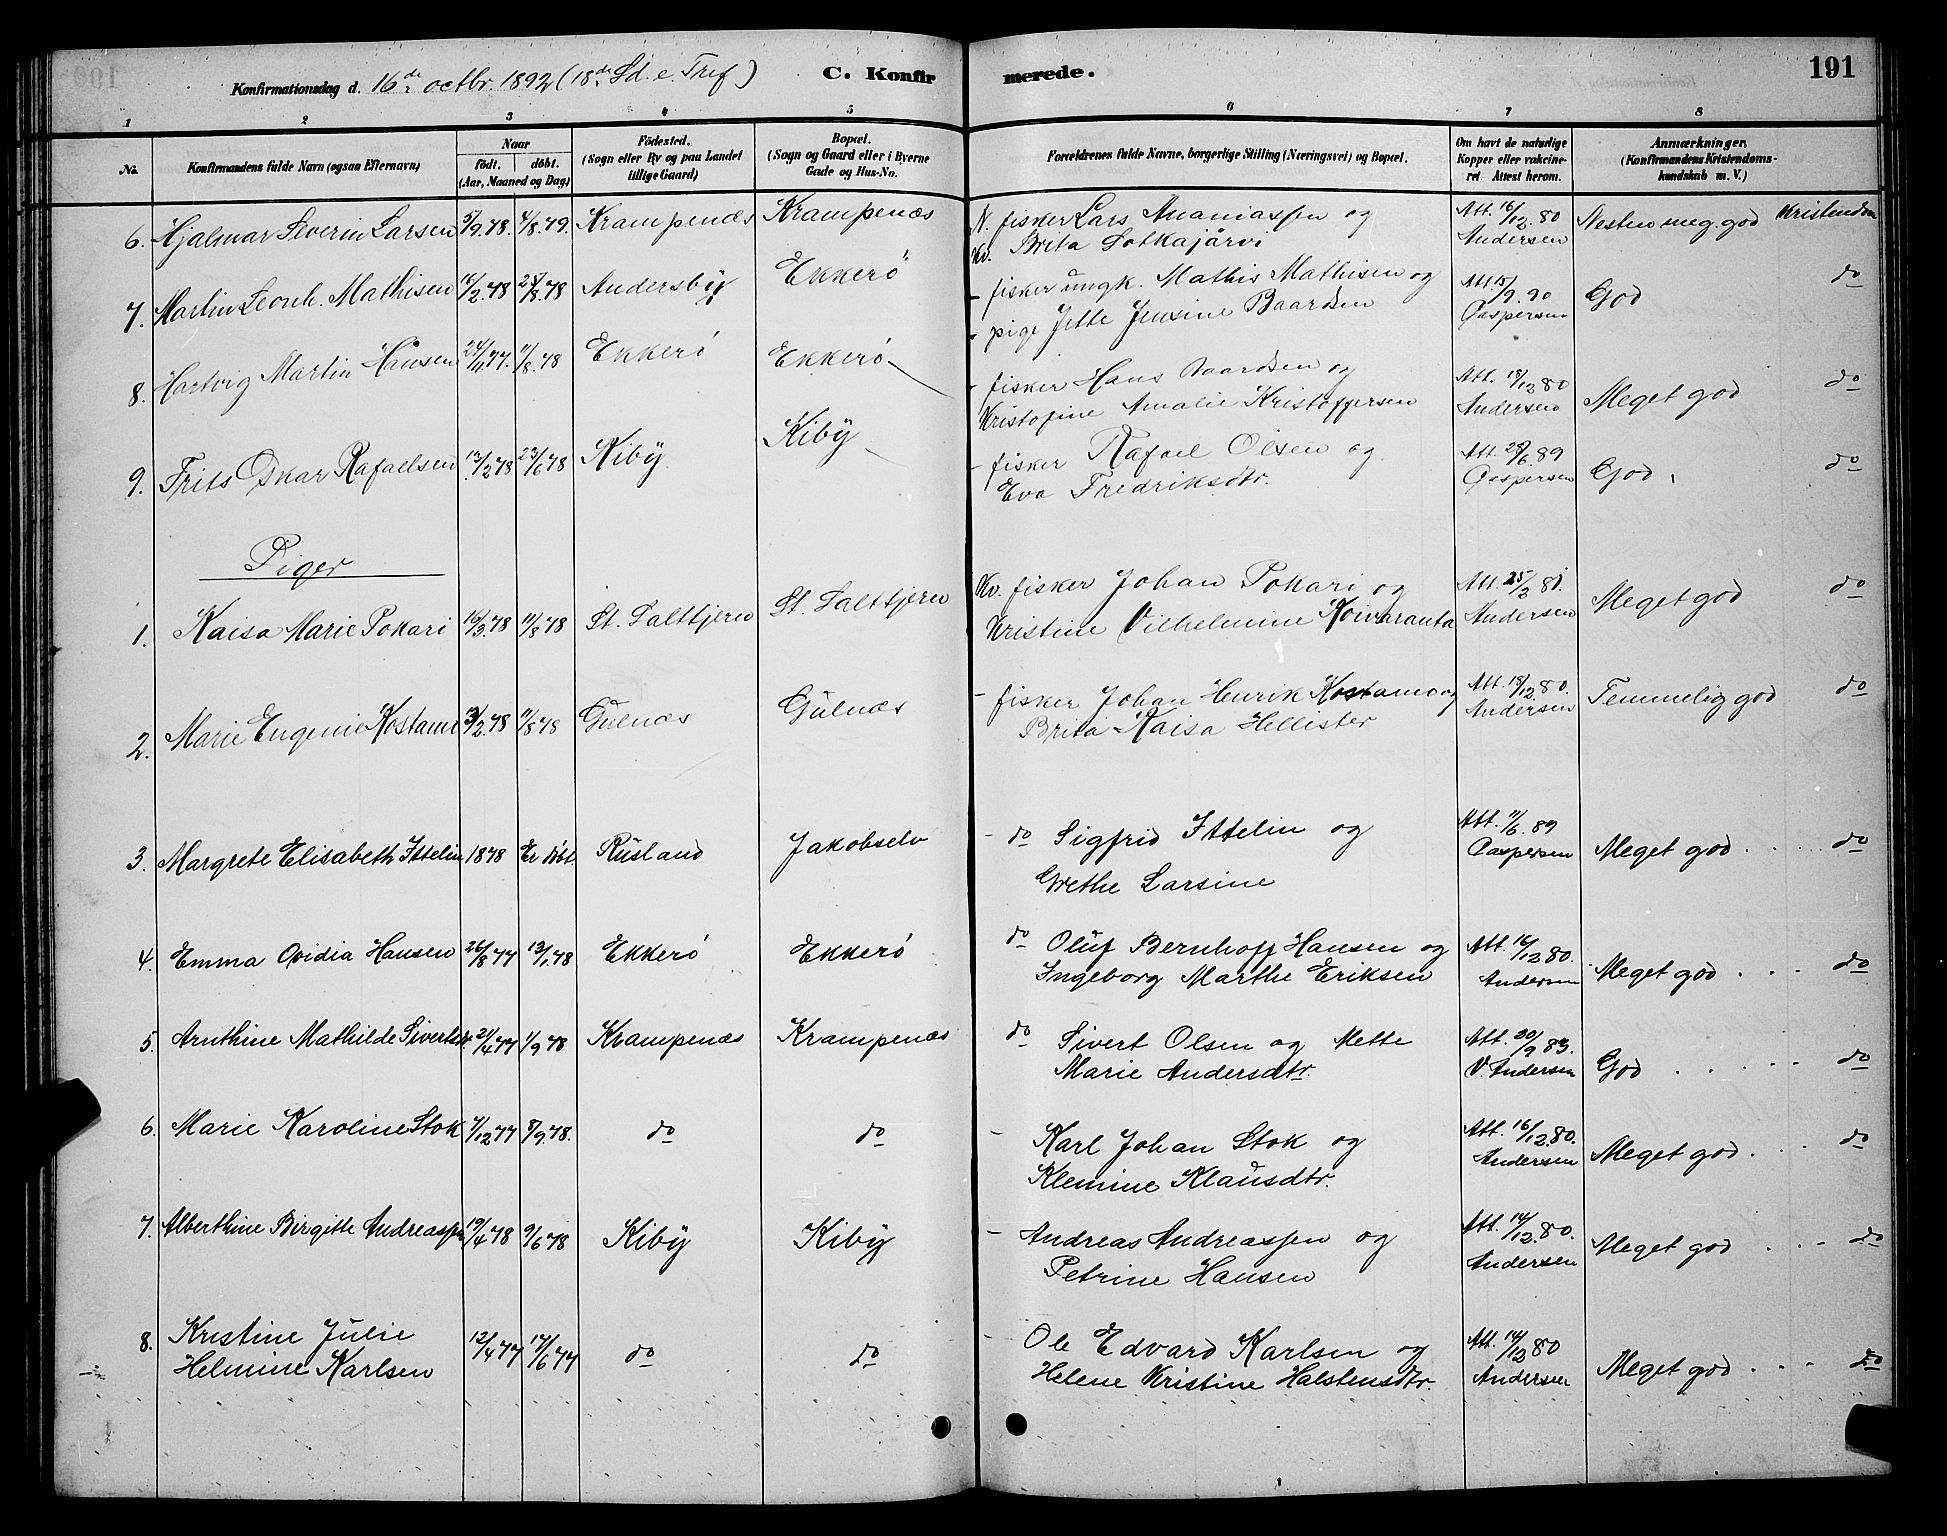 Konfirmationsdag d. 16de octbr. 1892 (18de Sd. e. Tref) C. Konfirmerede. 191
1 2 3 4 5 6 7 8
No. Konfirmandens fulde Navn (ogsaa Efternavn) Naar födt. döbt. (Aar, Maaned og Dag) Födested. (Sogn eller By og paa Landet tillige Gaard) Bopæl. (Sogn og Gaard eller i Byerne Gade og Hus-No. Forældrenes fulde Navne, borgerlige Stilling (Næringsvei) og Bopæl. Om havt de naturlige Kopper eller vakcineret. Attest herom. Anmærkninger. (Konfirmandens Kristendomskundskab m. V.)
6. Hjalmar Severin Larsen 5/9.78. 4/8.79. Krampenæs Krampenæs N. fisker Lars Ananiassen og Att. 16/12.80 Nesten meg. god Kristendom
Kv. Brita Sotkajärvi Andersen
7. Martin Leonh. Mathisen 16/2.78 25/8.78 Andersby Ekkerö - fisker ungk. Mathis Mathisen og Att 15/9.90 God do
- pige Jette Jensine Baardsen Caspersen
8. Hartvig Martin Hansen 24/11.77. 11/8.78 Ekkerö Ekkerö - fisker Hans Baardsen og Att. 18/12 80 Meget god do
Kristofine Amalie Kristoffersen Andersen
9. Frits Oskar Rafaelsen 13/2.78 23/6.78 Kiby Kiby - fisker Rafael Olsen og Att. 28/6.89 God. do
Eva Fredriksdtr. Caspersen
Piger
1. Kaisa Marie Pokari 16/3.78 11/8 78 St. Saltbjern St. Saltbjern Kv. fisker Johan Pokari og Att. 25/3 81. Meget god do
Kristine Vilhelmine Koivuranta Andersen
2. Marie Eugenie Kostamo 3/2.78 11/8 78 Gulnæs Gulnæs - fisker Johan Henrik Kostamo og Att. 18/12.80. Temmelig god do
Brita Kaisa Hellister Andersen
3. Margrete Elisabeth Ittelin 1878 Er döbt. Rusland Jakobselv - do Sigfrid Ittelin og Att. 11/6.89 Meget god . . . do
Grethe Larsine Caspersen
4. Emma Ovidia Hansen 26/8 77 13/1.78 Ekkerö Ekkerö do Oluf Bernhoff Hansen og Att. 16/12 80. Meget god . . . do
Ingeborg Marthe Eriksen Andersen
5. Arnthine Mathilde Sivertsdr. 21/4 77 1/9 78 Krampenæs Krampenæs do Sivert Olsen og Mette Att. 20/9 83. God . . . . . do
Marie Andersdtr. V. Andersen
6. Marie Karoline Stok 7/12 77 8/9.78. do do - Karl Johan Stok og Att. 16/12.80. Meget god . . . do
Klemine Klausdtr. Andersen
7. Alberthine Birgitte Andreassen 19/4 78 9/6 78 Kiby Kiby - Andreas Andreassen og Att. 14/12.80. Meget god . . . do
Petrine Hansen Andersen
8. Kristine Julie 12/4 77 17/6 77 do do - Ole Edvard Karlsen og Att. 14/12 80 Meget god . . . do
Helmine Karlsen Helene Kristine Halstensdtr. Andersen